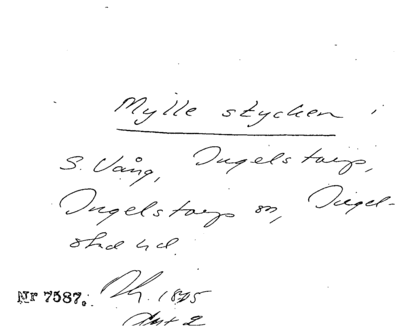 Mylle stycken i
S. Vång, Ingelstorp,
Ingelstorps sn, Ingel-
stad hd.
Nr 7587. 1875